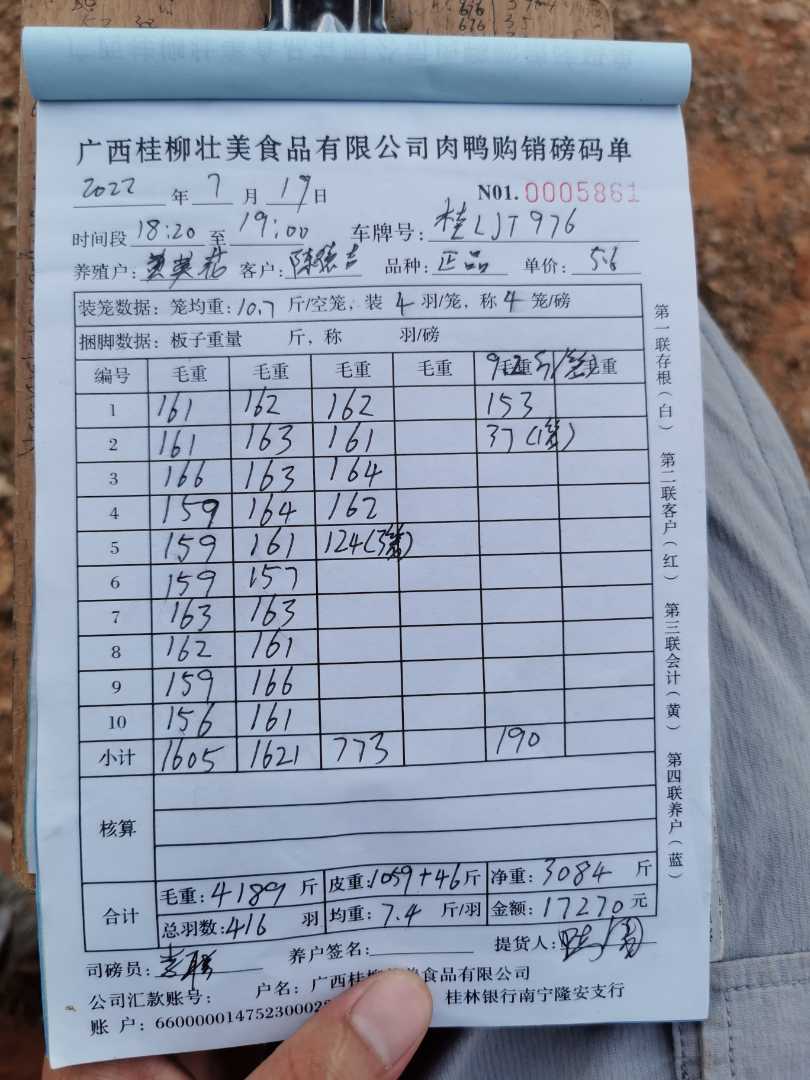 广西桂柳壮美食品有限公司肉鸭购销磅码单
2022 年 7 月 19 日 N01. 0005861
时间段 18:20 至 19:00 车牌号: 桂LJT976
养殖户: 客户: 品种: 正品 单价: 5.6
装笼数据: 笼均重: 10.7 斤/空笼, 装 4 羽/笼, 称 4 笼/磅
捆脚数据: 板子重量 斤, 称 羽/磅
编号 毛重 毛重 毛重 毛重 毛重 毛重
9.2斤/笼
1 161 162 162 153
2 161 163 161 37(1笼)
3 166 163 164
4 159 164 162
5 159 161 124(3笼)
6 159 157
7 163 163
8 162 161
9 159 166
10 156 161
小计 1605 1621 773 190
核算
合计 毛重: 4189 斤 皮重: 1059+46 斤 净重: 3084 斤
总羽数: 416 羽 均重: 7.4 斤/羽 金额: 17270 元
司磅员: 养户签名: 提货人:
公司汇款账号: 户名: 广西桂柳 美食品有限公司
账 户: 6600000147523000 桂林银行南宁隆安支行
第一联存根(白) 第二联客户(红) 第三联会计(黄) 第四联养户(蓝)